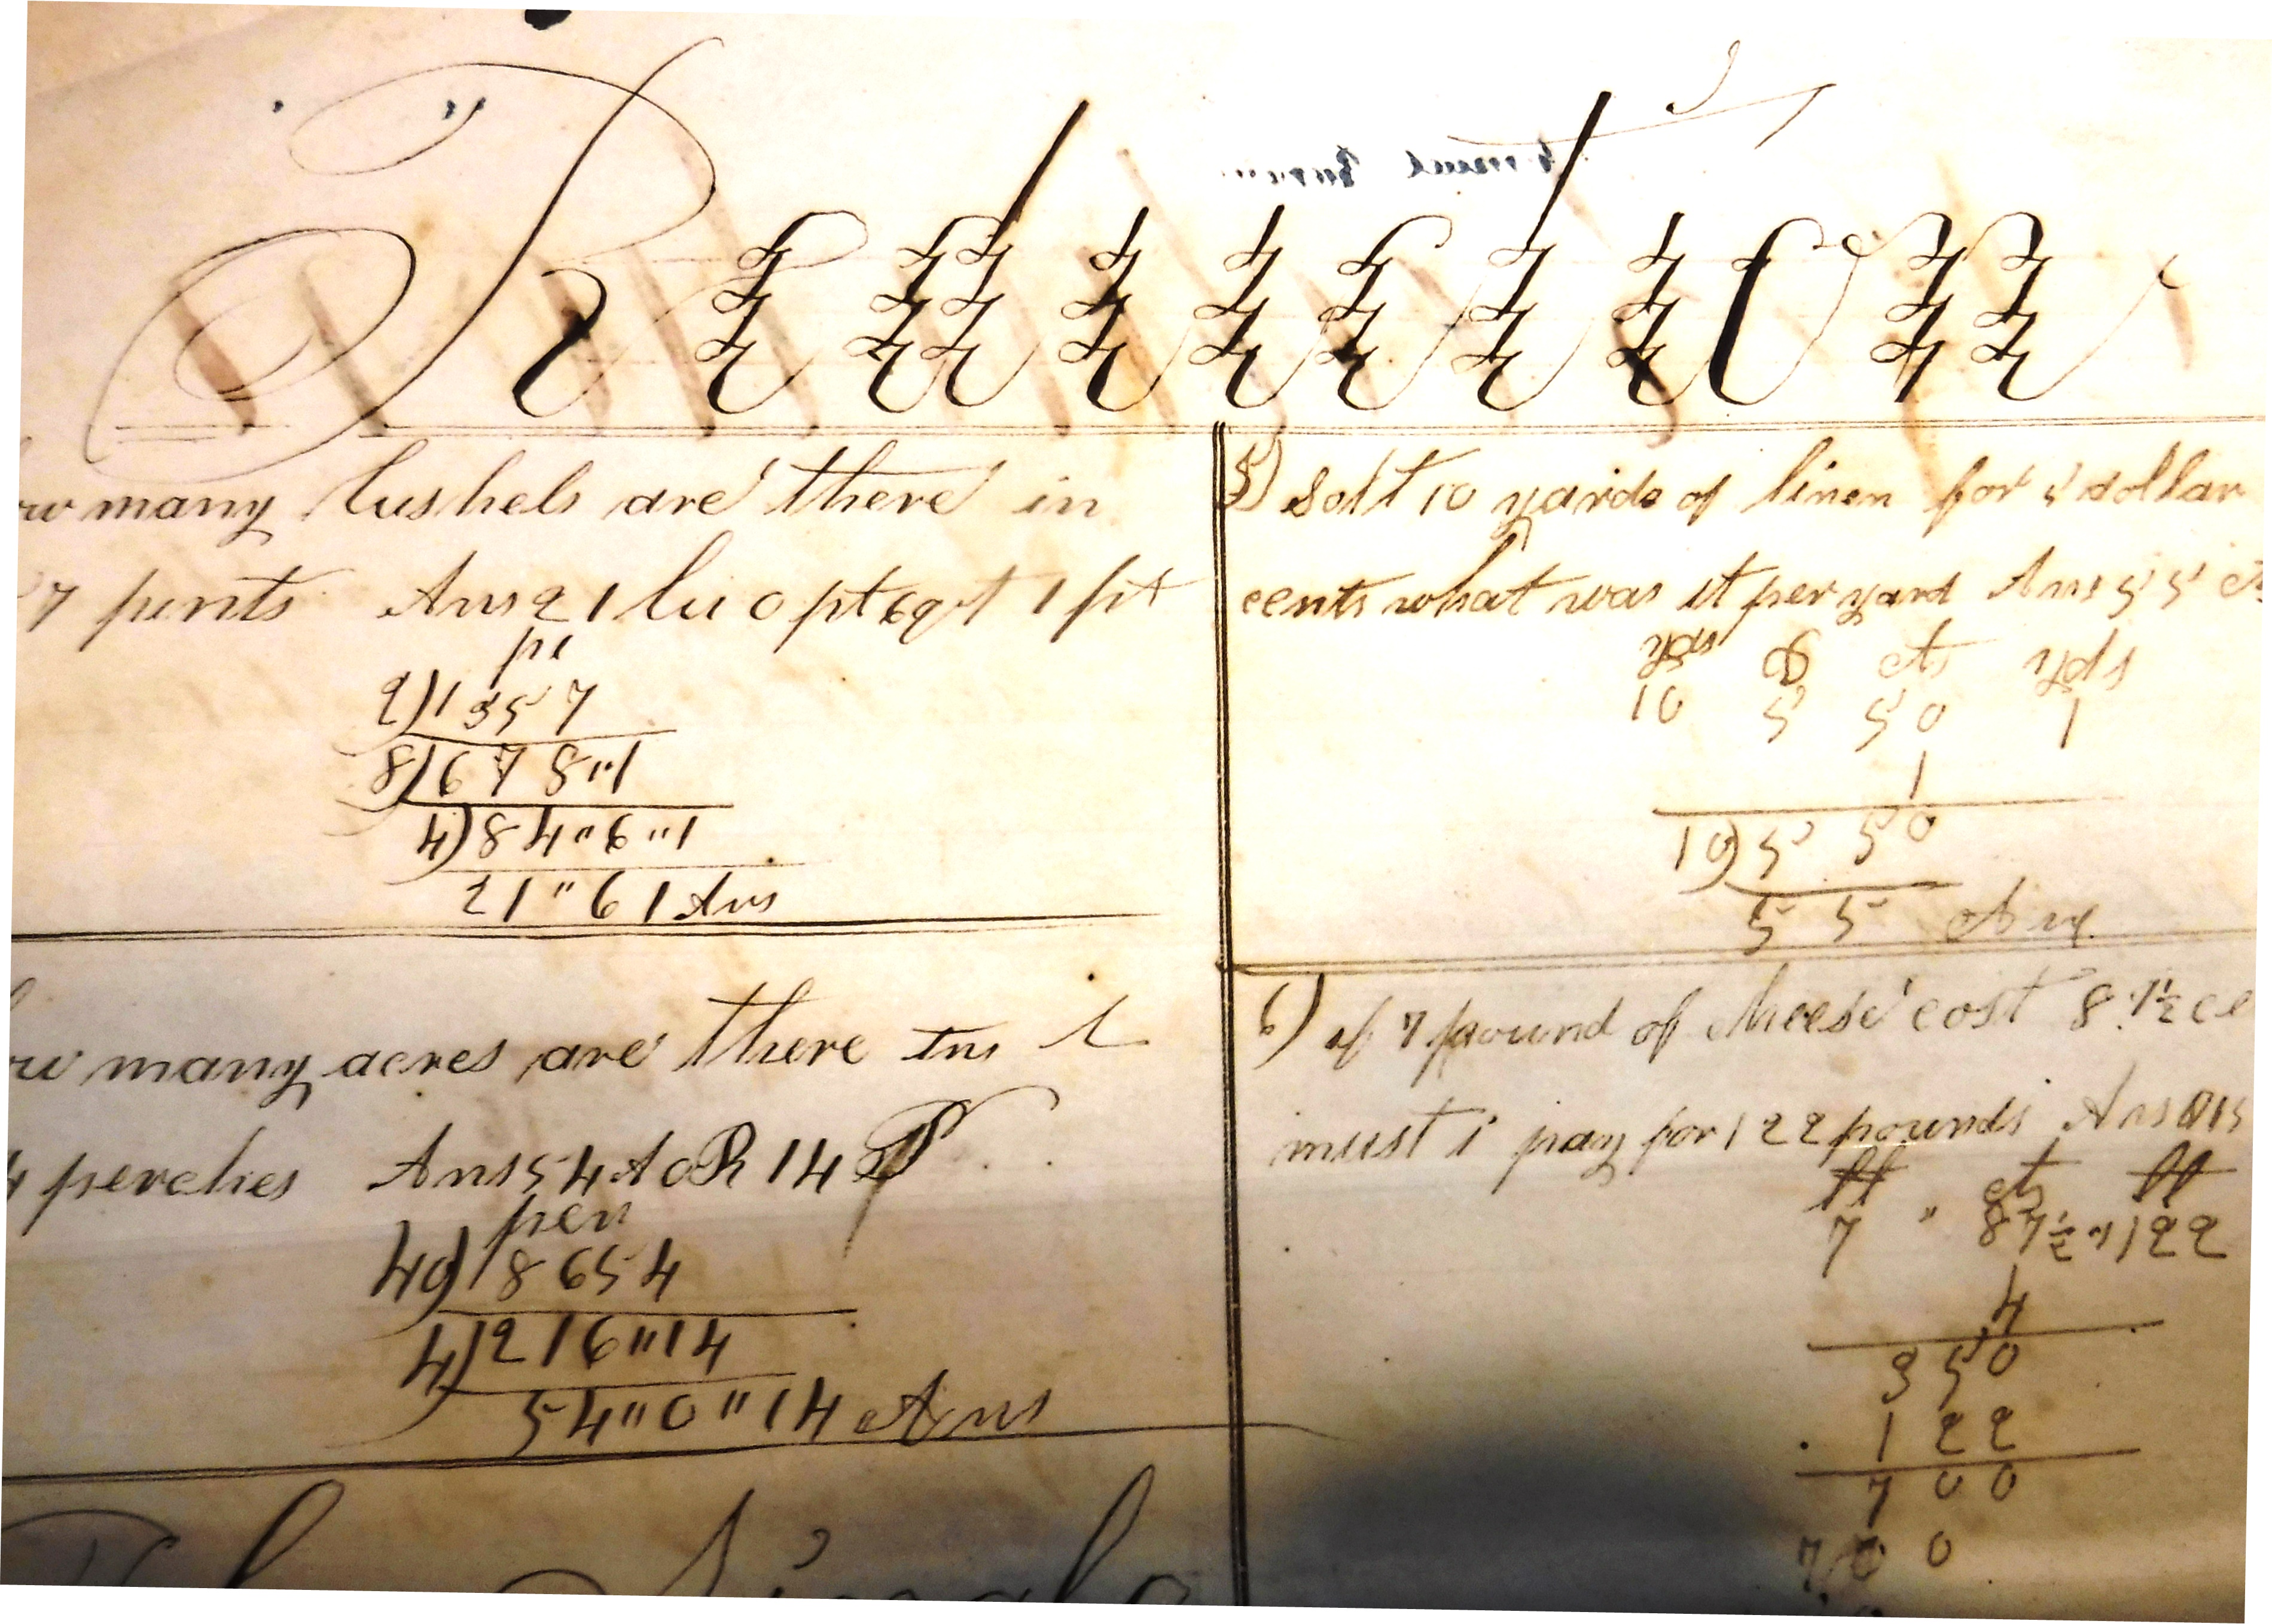 Reduction
many bushels are there in
7 pints Ans 21 bu 0 pt 6 qrt 1 pt
pi
2)1357
8)678"1
4)84"6"1
21"61 Ans
many acres are there Ins
4 perches Ans 54 A 0 R 14 P
per
40)8654
4)216"14
54"0"14 Ans
5) Solt 10 yards of linen for 5 dollar
cents what was it per yard Ans 55 ct
yds $ cts yds
10 5 50 1
1
10)5 50
55 Ans
6) if 7 pound of cheese cost 87½ ce
must i pay for 122 pounds Ans $15
lb cts lb
7 " 87½ " 122
4
350
122
700
700